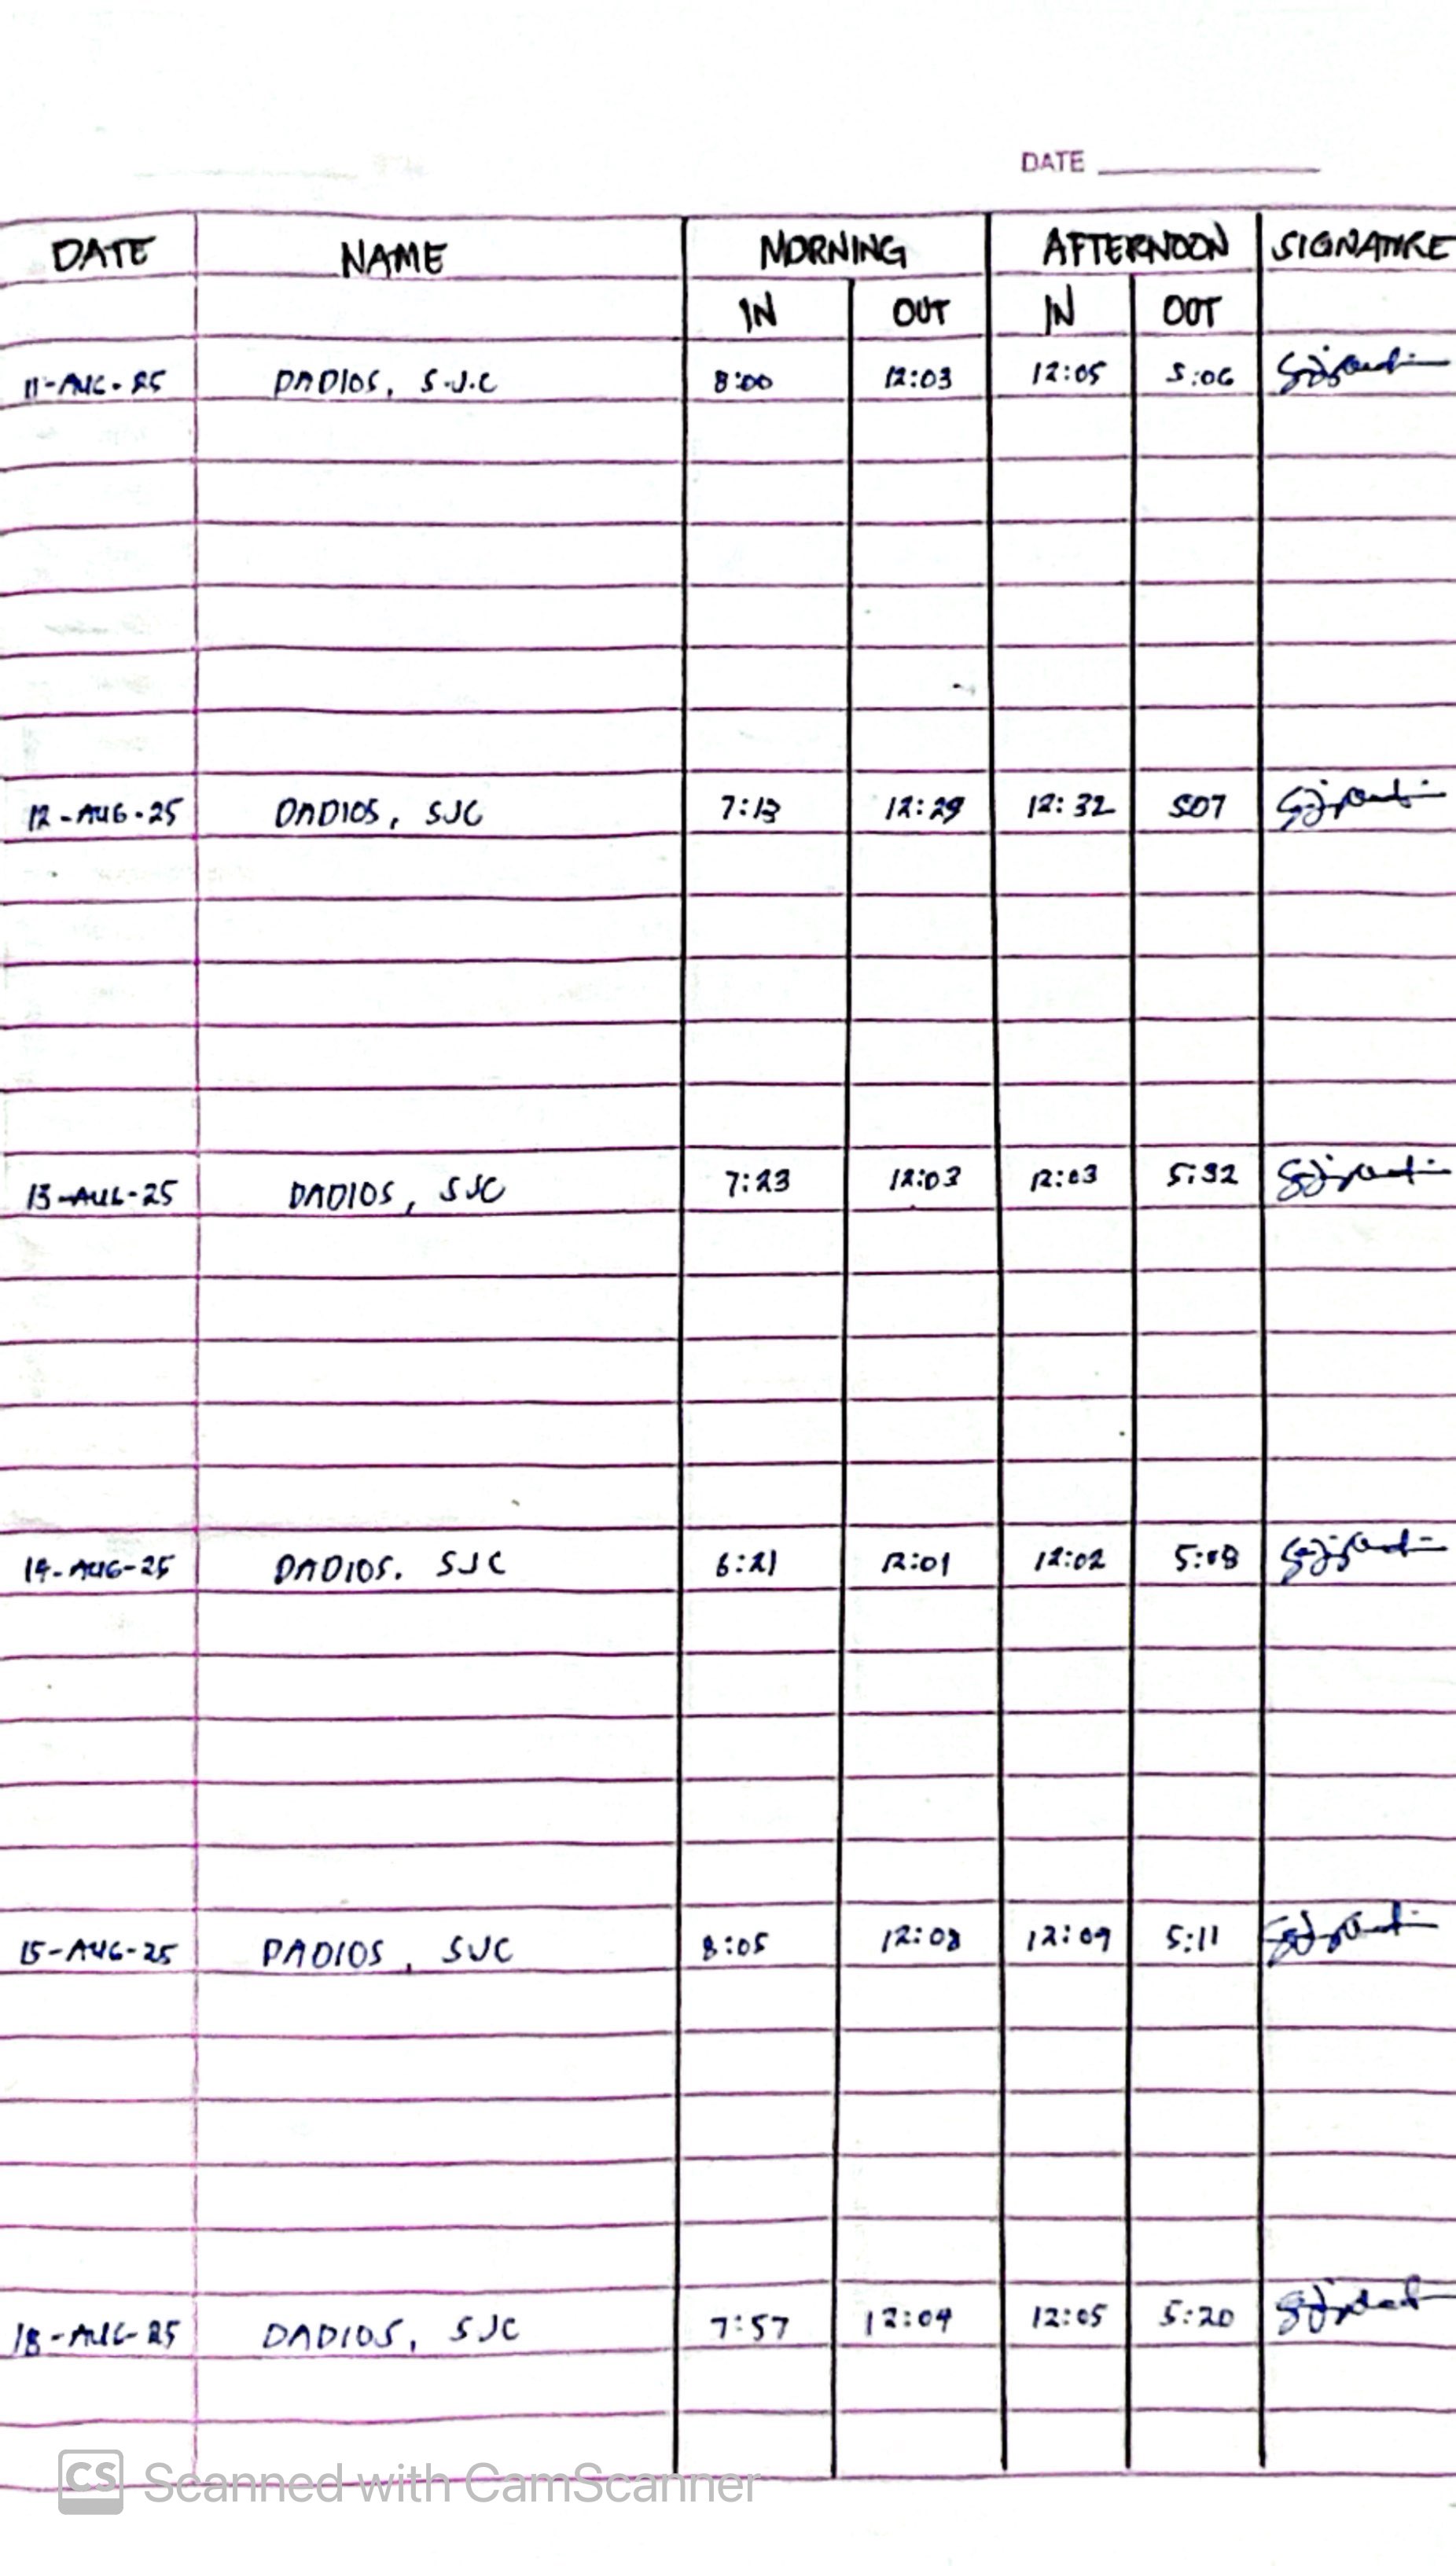 DATE
DATE NAME MORNING AFTERNOON SIGNATURE
IN OUT IN OUT
11-AUG-25 DADIOS, S.J.C 8:00 12:03 12:05 5:06
12-AUG-25 DADIOS, SJC 7:13 12:29 12:32 507
13-AUG-25 DADIOS, SJC 7:23 12:03 12:03 5:32
14-AUG-25 DADIOS. SJC 6:21 12:01 12:02 5:08
15-AUG-25 DADIOS, SJC 8:05 12:08 12:09 5:11
18-AUG-25 DADIOS, SJC 7:57 12:04 12:05 5:20
CS Scanned with CamScanner